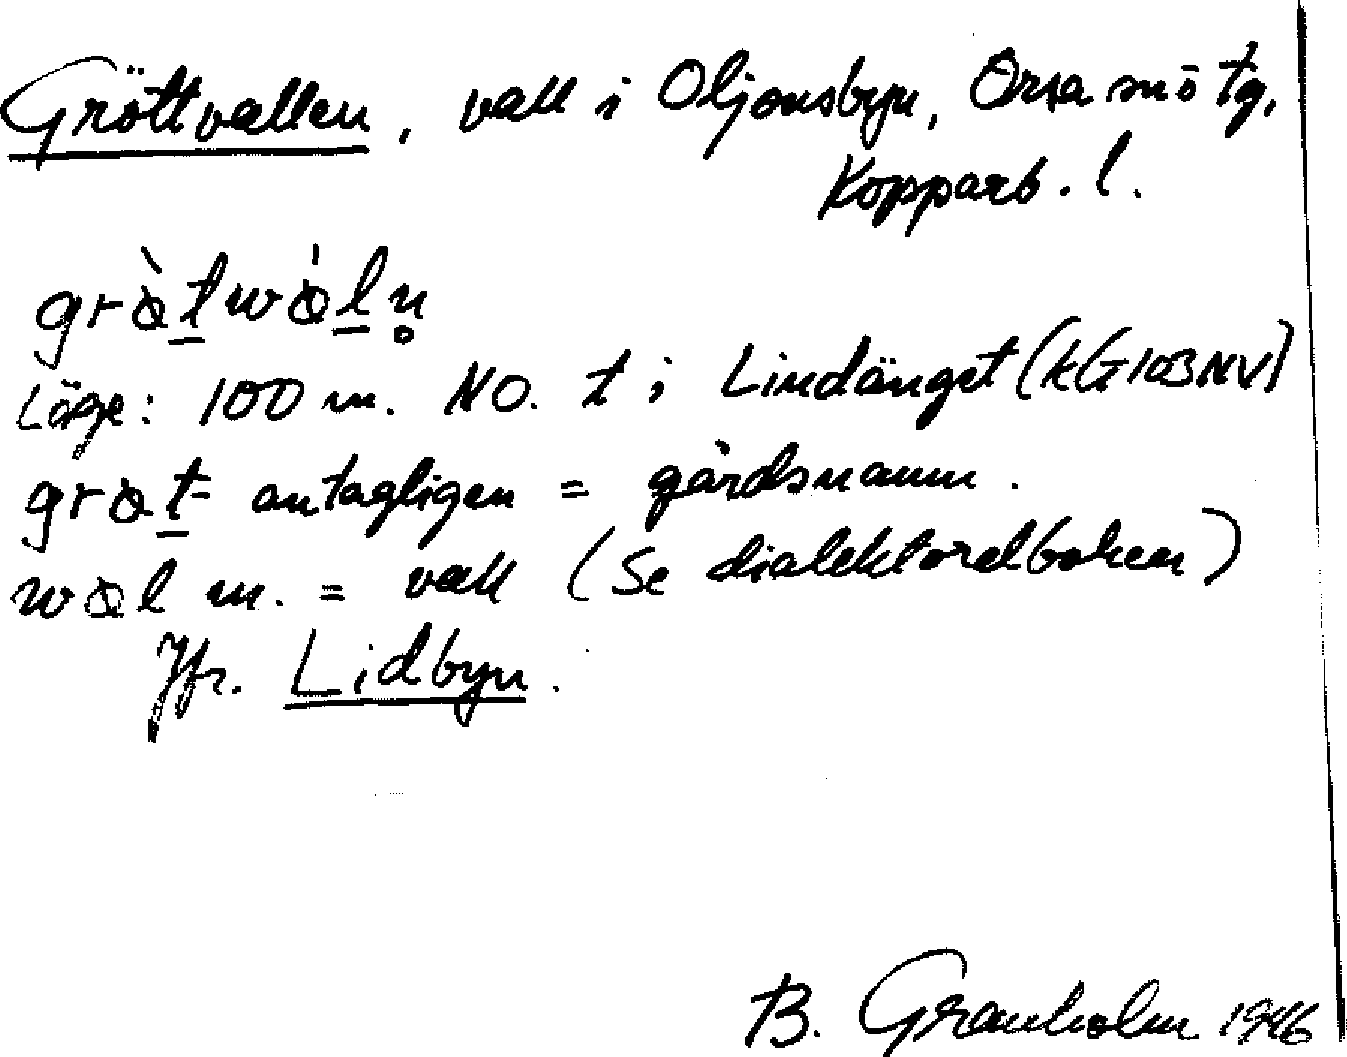 Gröttvallen, vall i Oljonsbyn, Orsa sn o tg,
Kopparb. l.
grὰt̲wὰl̲n̥
Läge: 100 m. NO. t i Lindänget (kG103NV)
grαt̲= antagligen = gårdsnamn.
wαl m. = vall (Se dialektordboken)
Jfr. Lidbyn.
B. Granholm 1946